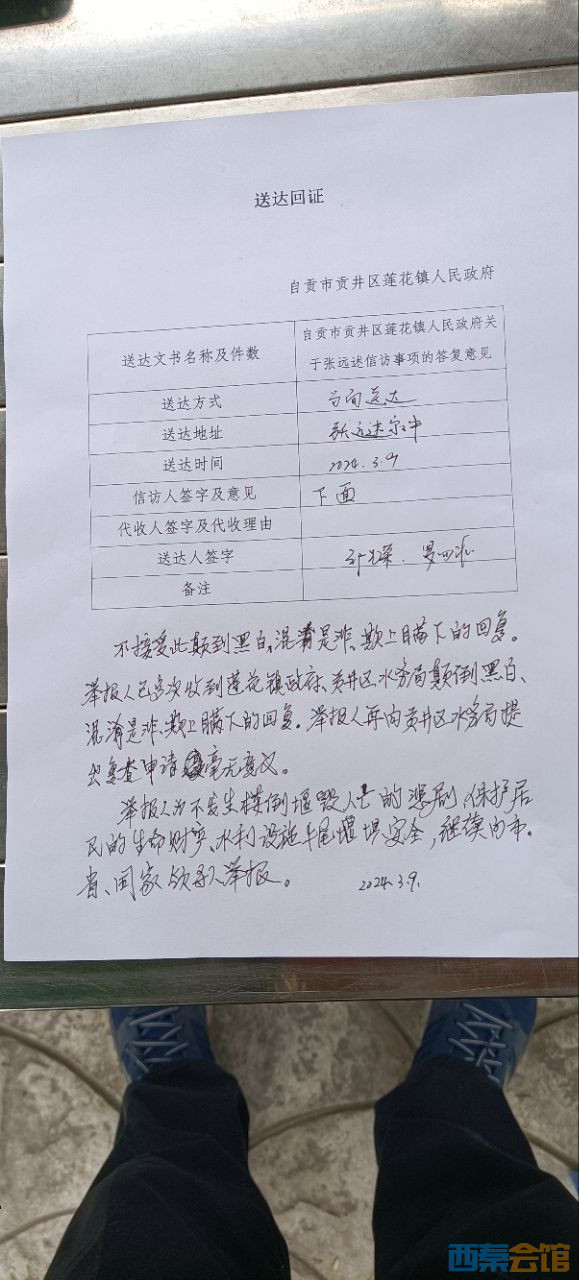 送达回证
自贡市贡井区莲花镇人民政府
送达文书名称及件数 自贡市贡井区莲花镇人民政府关
于张远述信访事项的答复意见
送达方式 当面送达
送达地址 张远述家中
送达时间 2024.3.9
信访人签字及意见 下面
代收人签字及代收理由
送达人签字
备注
不接受此颠到黑白,混淆是非、欺上瞒下的回复。
举报人已多次收到莲花镇政府、贡井区水务局颠倒黑白、
混淆是非、欺上瞒下的回复。举报人再向贡井区水务局提
出复查申请毫无意义。
举报人为不发生楼倒堰毁人亡的悲剧、保护居
民的生命财产、水利设施牛尾堰坝安全,继续向市、
省、国家领导人举报。 2024.3.9.
西秦会馆